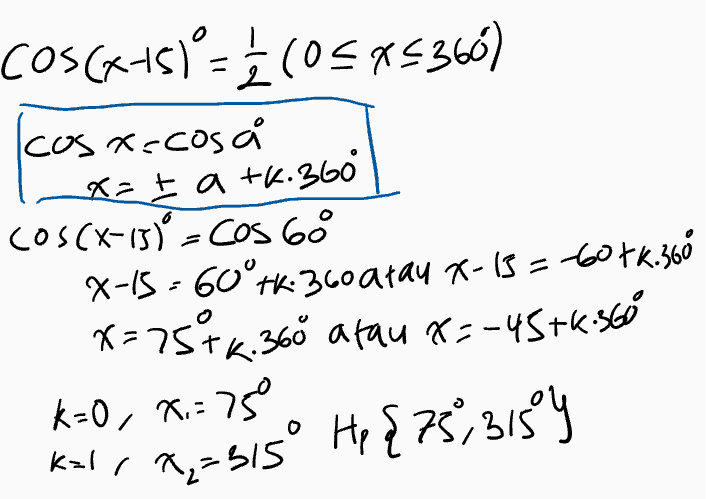 cos(x-15)° = 1/2 (0 ≤ x ≤ 360°)
cos x = cos a°
x = ± a + k.360°
cos(x-15)° = cos 60°
x-15 = 60° + k.360 atau x-15 = -60 + k.360°
x = 75° + k.360° atau x = -45 + k.360°
k=0, x₁ = 75°
k=1, x₂ = 315° Hp { 75°, 315° }